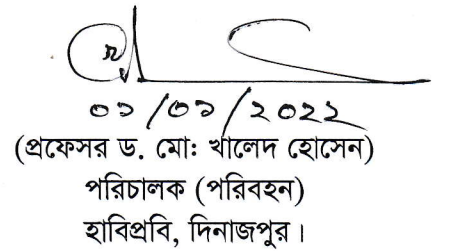 ০১/০১/২০২২
(প্রফেসর ড. মো: খালেদ হোসেন)
পরিচালক (পরিবহন)
হাবিপ্রবি, দিনাজপুর।